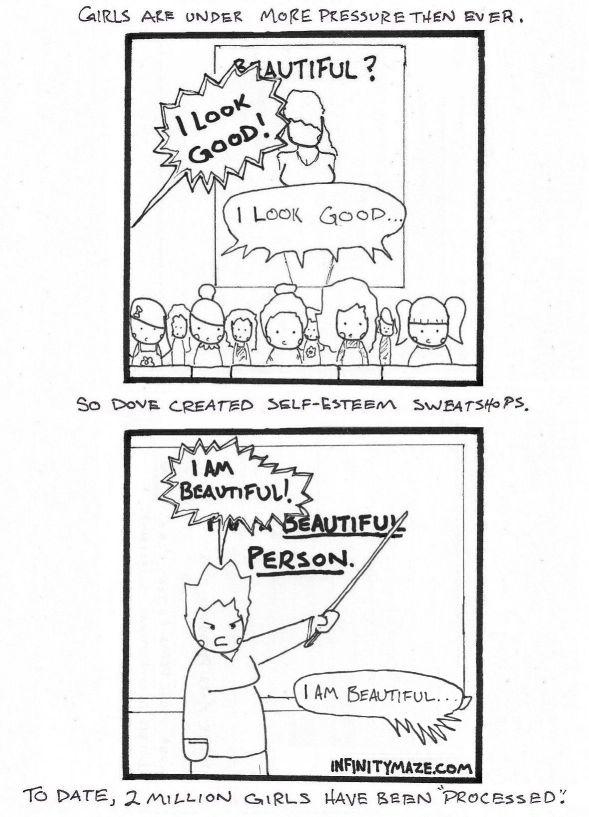 GIRLS ARE UNDER MORE PRESSURE THEN EVER.
BEAUTIFUL?
I LOOK
GOOD!
I LOOK GOOD...
SO DOVE CREATED SELF-ESTEEM SWEATSHOPS.
I AM
BEAUTIFUL!
BEAUTIFUL
PERSON.
I AM BEAUTIFUL...
INFINITYMAZE.COM
TO DATE, 2 MILLION GIRLS HAVE BEEN "PROCESSED".